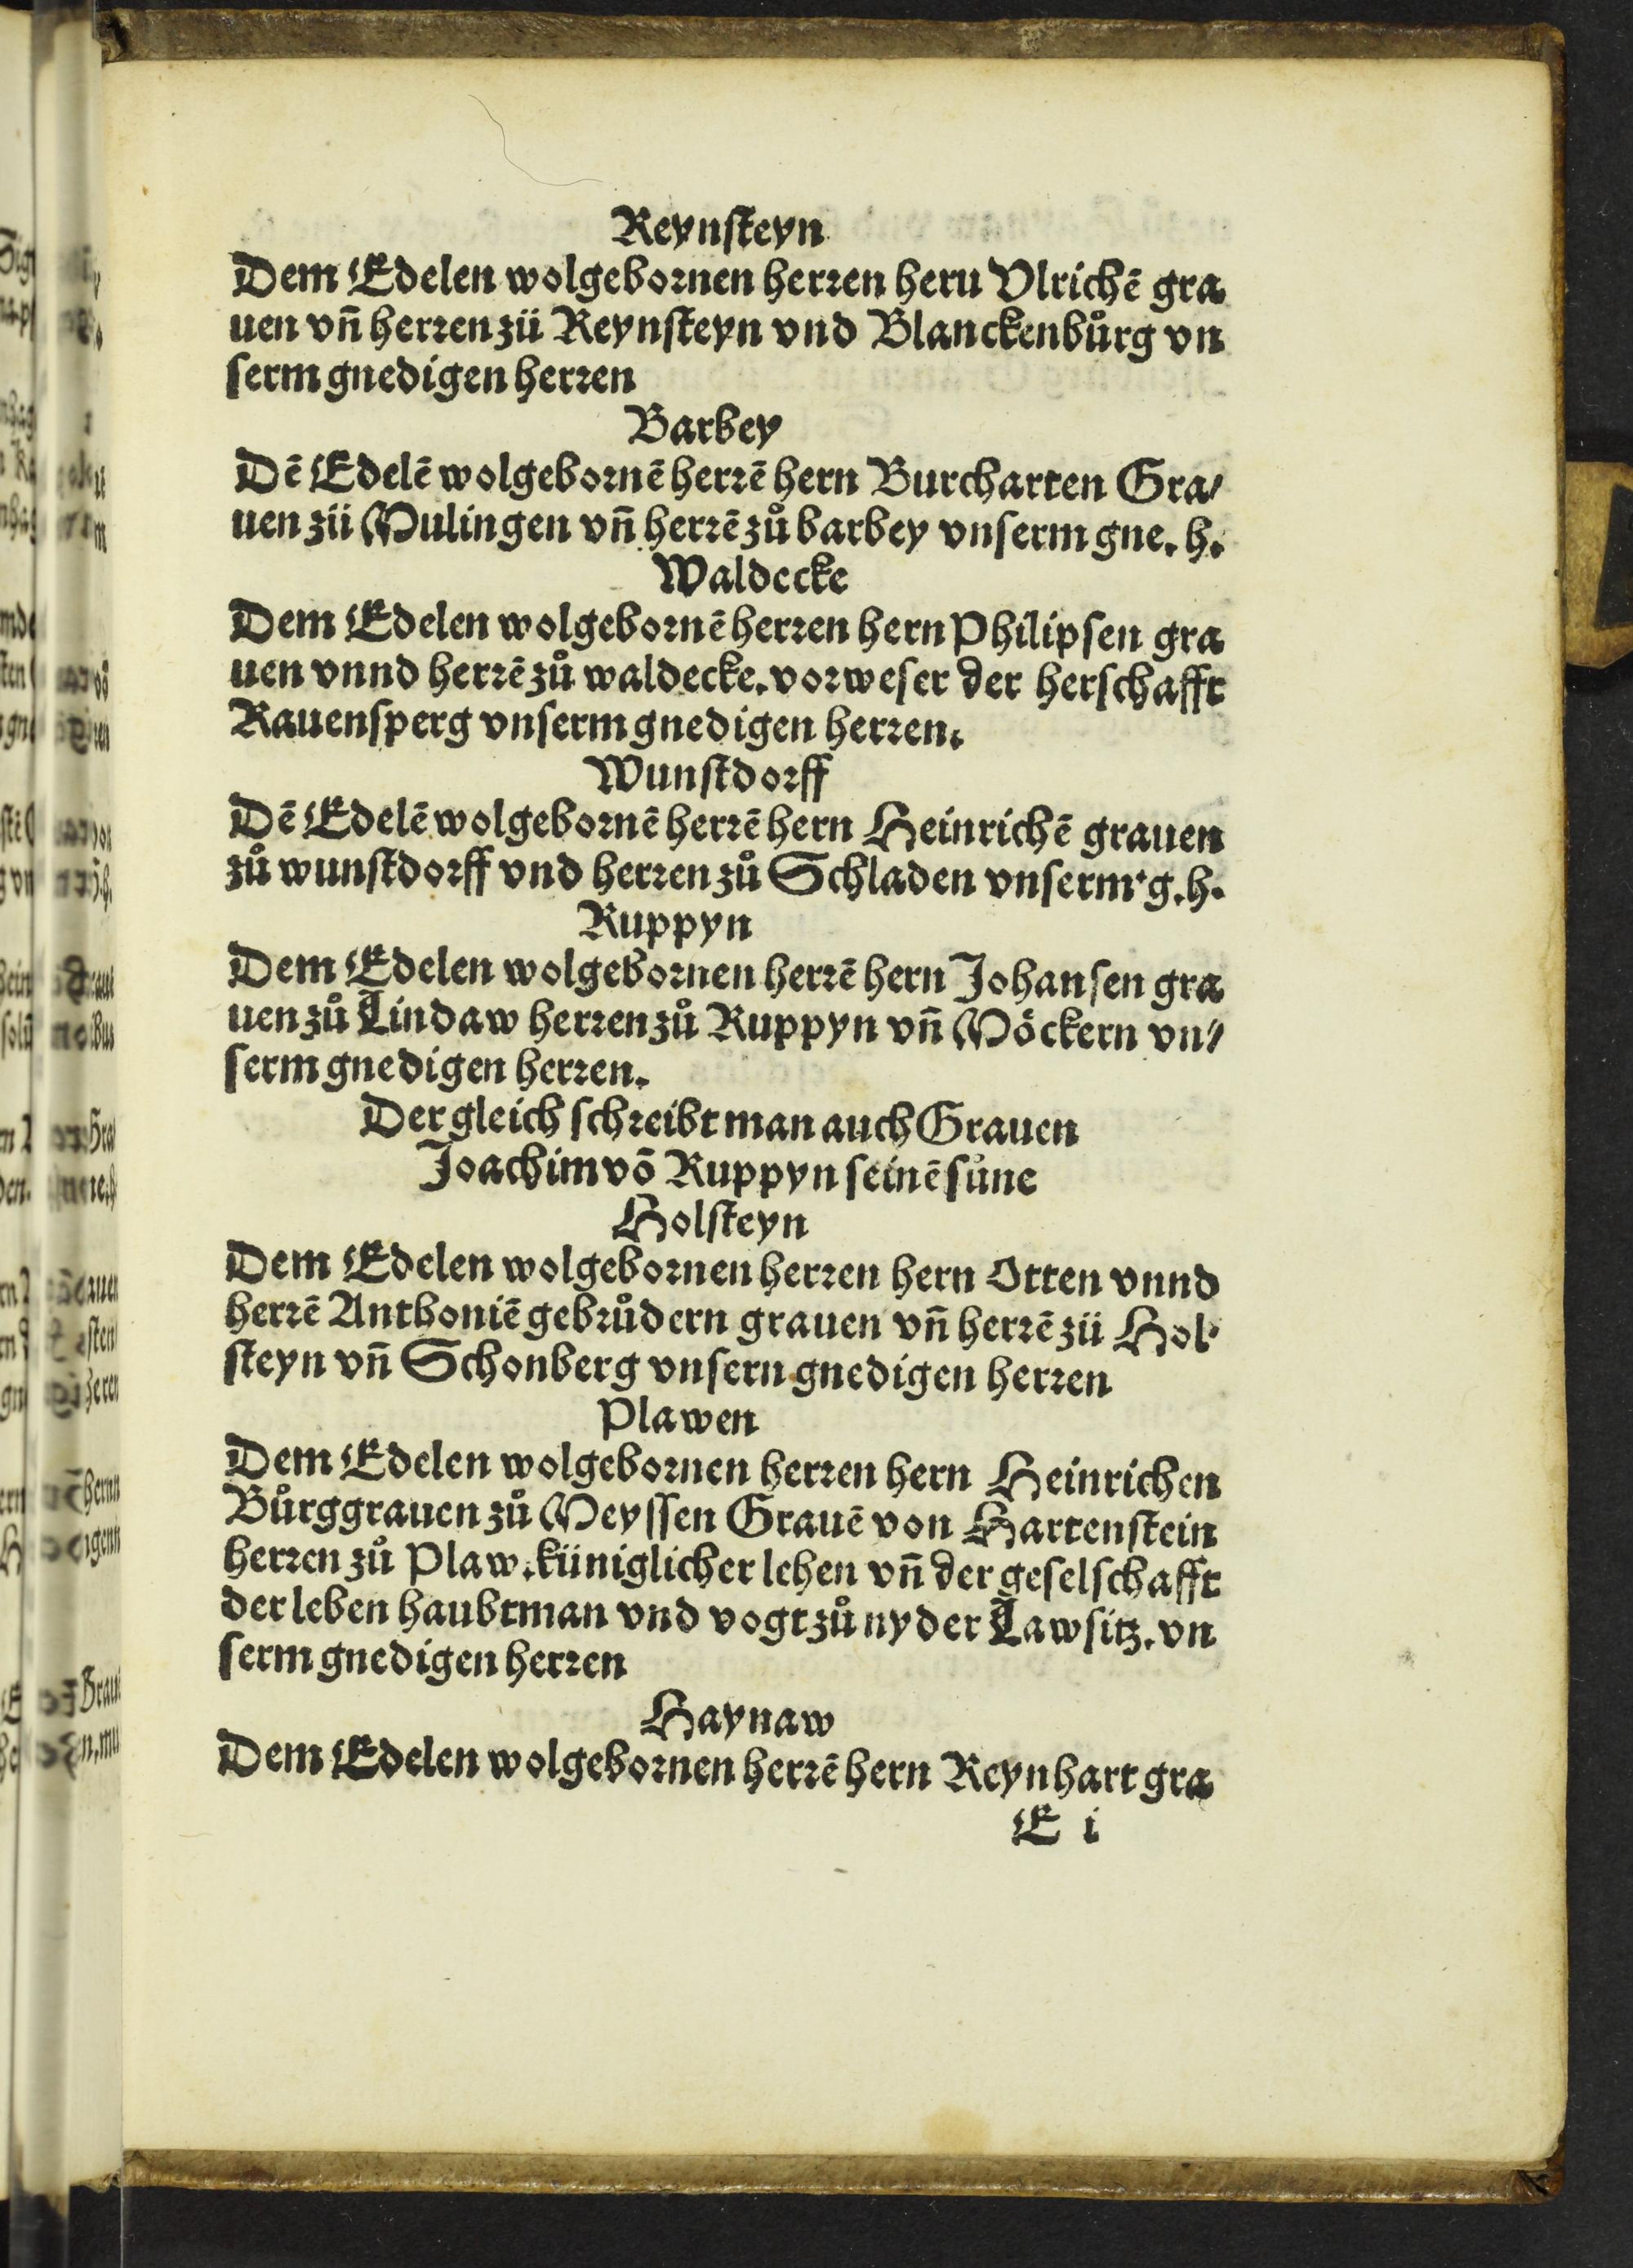 Reynsteyn
Dem Edelen wolgebornen herren heru Vlrichē gra
uen vn̄ herren zü Reynsteyn vnd Blanckenbůrg vn
serm gnedigen herren
Barbey
Dē Edelē wolgebornē herrē hern Burcharten Gra/
uen zü Mulingen vn̄ herrē zů barbey vnserm gne. h.
Waldecke
Dem Edelen wolgebornē herren hern Philipsen gra
uen vnnd herrē zů waldecke. vorweser der herschafft
Rauensperg vnserm gnedigen herren.
Wunstdorff
Dē Edelē wolgebornē herrē hern Heinrichē grauen
zů wunstdorff vnd herren zů Schladen vnserm g. h.
Ruppyn
Dem Edelen wolgebornen herrē hern Johansen gra
uen zů Lindaw herren zů Ruppyn vn̄ Möckern vn/
serm gnedigen herren.
Der gleich schreibt man auch Grauen
Joachim vō Ruppyn seinē sůne
Holsteyn
Dem Edelen wolgebornen herren hern Otten vnnd
herrē Anthoniē gebrůdern grauen vn̄ herrē zü Hol/
steyn vn̄ Schonberg vnsern gnedigen herren
Plawen
Dem Edelen wolgebornen herren hern Heinrichen
Bůrggrauen zů Meyssen Grauē von Hartenstein
herren zů Plaw. küniglicher lehen vn̄ der geselschafft
der leben haubtman vnd vogt zů nyder Lawsitz. vn
serm gnedigen herren
Haynaw
Dem Edelen wolgebornen herrē hern Reynhart gra
E i